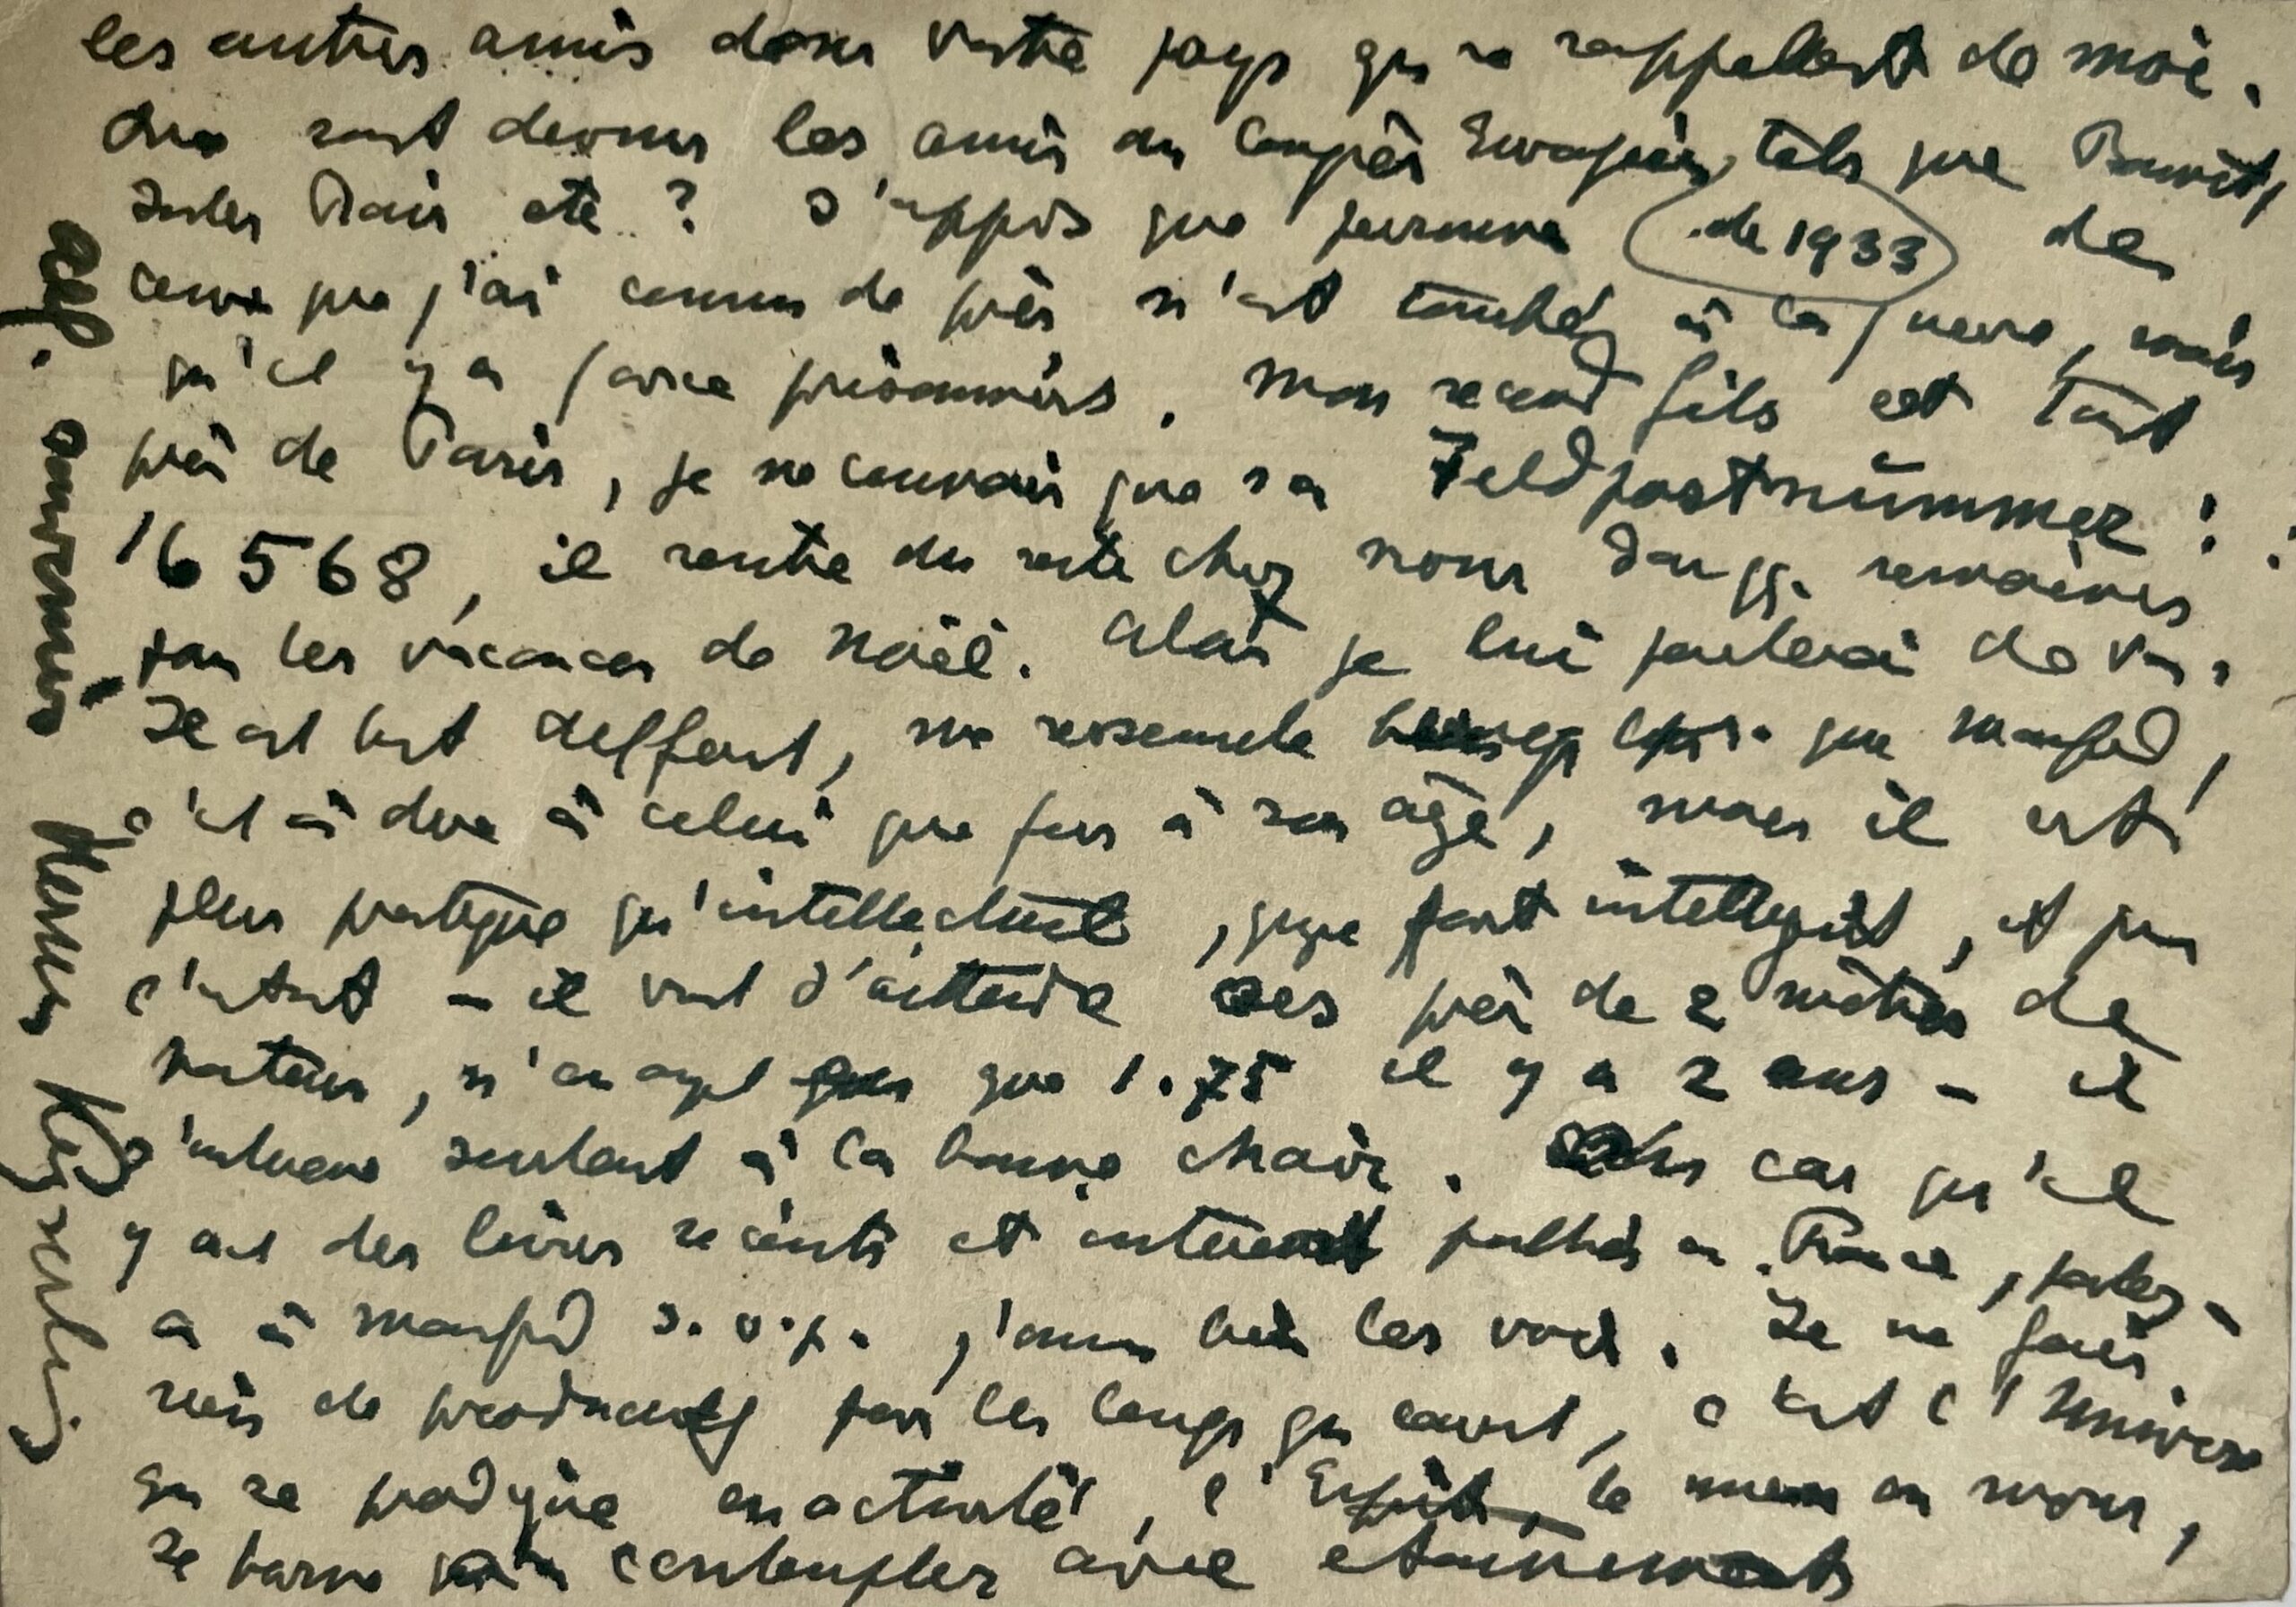 les autres amis dans votre pays qui se rappellent de moi.
Que sont devenus les amis du Congrès Européen, tels que
Jules etc? J'appris que personne de 1933 de
ceux que j'ai connu de près n'est tombé à la guerre, mais
qu'il y a force prisonniers. Mon second fils est tout
près de Paris, je ne connais que sa Feldpostnummer:
16568, il rentre du reste chez nous dans qq. semaines
pour les vacances de Noël. Alors je lui parlerai de vous.
Il est tout différent, me ressemble que Manfred,
c'est à dire à celui que fus à son âge, mais il est
plus pratique qu'intellectuel, quoique fort intelligent, et pour
l'instant - il vient d'atteindre près de 2 mètres de
hauteur, n'en ayant que 1.75 il y a 2 ans - il
s'intéresse seulement à la bonne chair. cas qu'il
y ait des livres récents et intéressants publiés en France, parlez-
en à Manfred s.v.p. j'aimerais bien les voir. Je ne fais
rien de productif par les temps qui courent, c'est l'Univers
qui se prodigue en activité, l'Esprit, le mien du moins,
se borne à contempler avec étonnement
aff. souvenir Hermann Keyserling